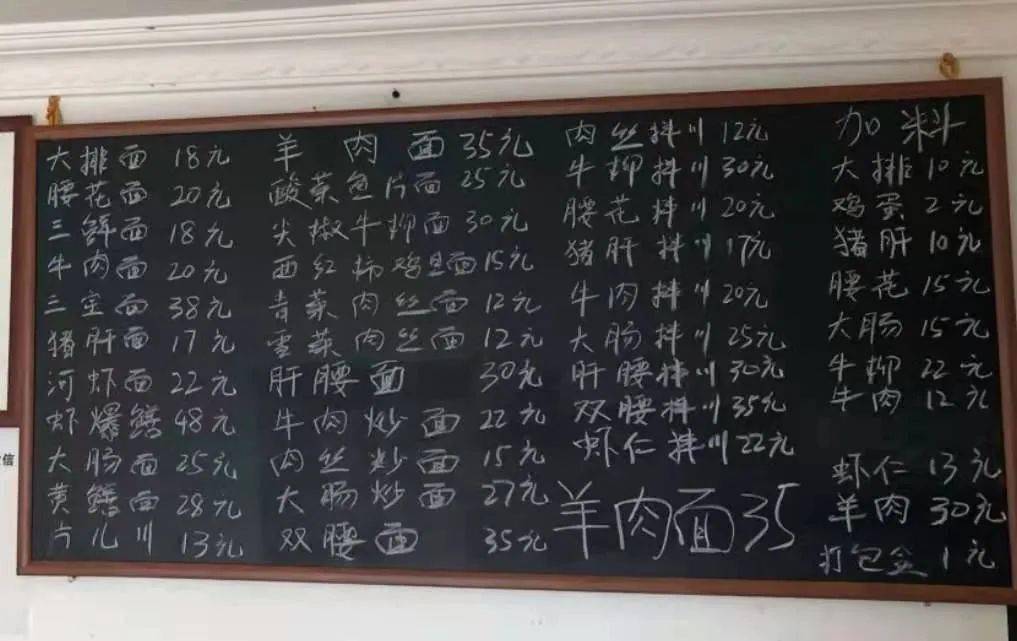 大排面 18元
腰花面 20元
三鲜面 18元
牛肉面 20元
三宝面 38元
猪肝面 17元
河虾面 22元
虾爆鳝 48元
大肠面 25元
黄鳝面 28元
片儿川 13元
羊肉面 35元
酸菜鱼片面 25元
尖椒牛柳面 30元
西红柿鸡旦面 15元
青菜肉丝面 12元
雪菜肉丝面 12元
肝腰面 30元
牛肉炒面 22元
肉丝炒面 15元
大肠炒面 27元
双腰面 35元
肉丝拌川 12元
牛柳拌川 30元
腰花拌川 20元
猪肝拌川 17元
牛肉拌川 20元
大肠拌川 25元
肝腰拌川 30元
双腰拌川 35元
虾仁拌川 22元
羊肉面 35
加料
大排 10元
鸡蛋 2元
猪肝 10元
腰花 15元
大肠 15元
牛柳 22元
牛肉 12元
虾仁 13元
羊肉 30元
打包盒 1元
信